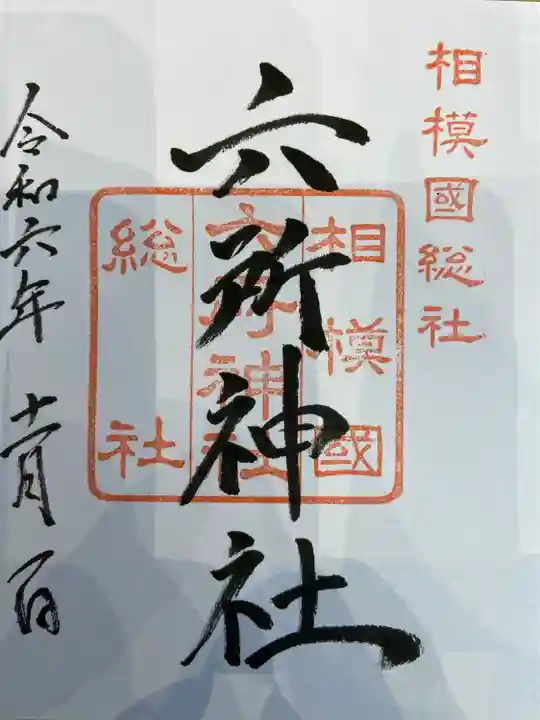 相模國総社
六所神社
相模國
六所神社
総社
令和六年